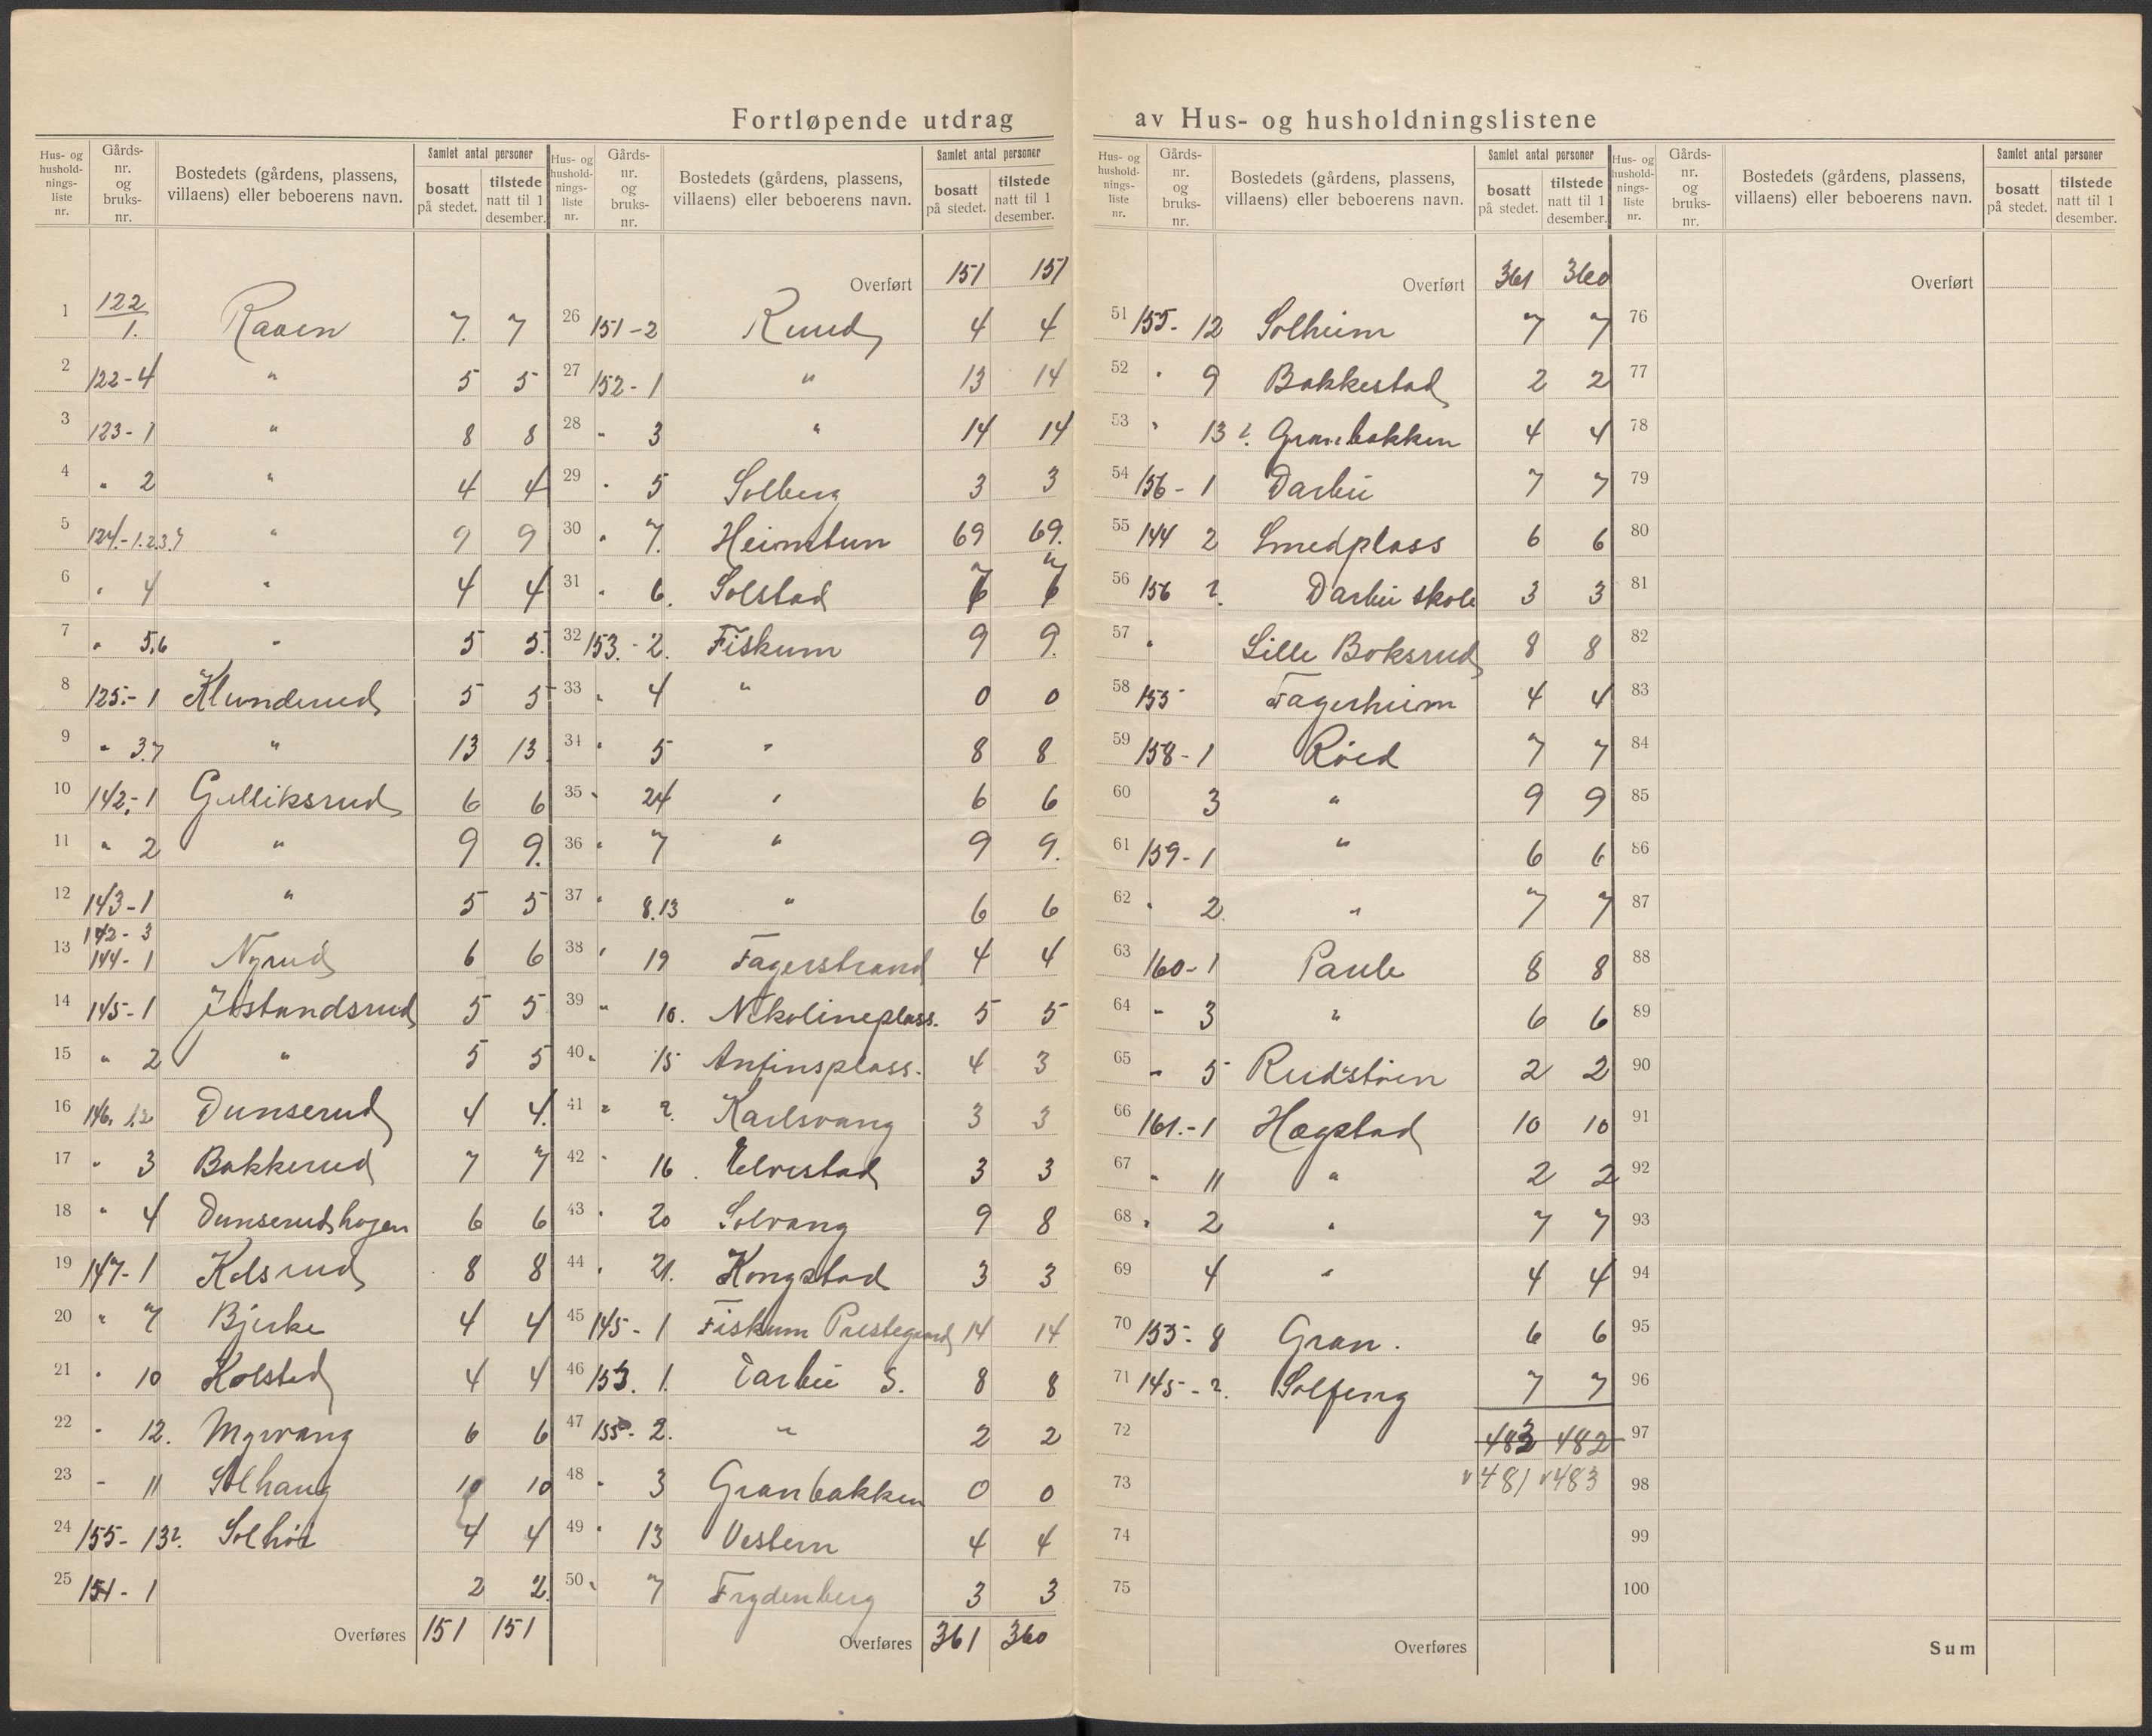 Fortløpende utdrag av Hus- og husholdningslistene
Hus- og hushold-nings-liste nr. | Gårds-nr. og bruks-nr. | Bostedets (gårdens, plassens, villaens) eller beboerens navn. | Samlet antal personer | bosatt på stedet. | tilstede natt til 1 desember.
1 122/1. Raaen 7. 7
2 122-4 " 5 5
3 123-1 " 8 8
4 " 2 " 4 4
5 124.-1.2.3.7 " 9 9
6 " 4 " 4 4
7 " 5.6 " 5 5.
8 125.-1 Klunderud 5 5
9 " 3.7 " 13 13
10 142.-1 Gulliksrud 6 6
11 " 2 " 9 9.
12 143-1 " 5 5
13 142-3 144-1 Nyrud 6 6
14 145-1 Jostandsrud 5 5
15 " 2 " 5 5
16 146. 1.2 Dunserud 4 4.
17 " 3 Bakkerud 7 7
18 " 4 Dunserudshagen 6 6
19 147-1 Kolsrud 8 8
20 " 7 Bjerke 4 4
21 " 10 Holstad 4 4
22 " 12. Myrvang 6 6
23 - 11 Solhaug 10 10
24 155-13?. Solhöi 4 4
25 151-1 2 2.
Overføres 151 151
Hus- og hushold-nings-liste nr. | Gårds-nr. og bruks-nr. | Bostedets (gårdens, plassens, villaens) eller beboerens navn. | Samlet antal personer | bosatt på stedet. | tilstede natt til 1 desember.
Overført 151 151
26 151-2 Ruud 4 4
27 152-1 " 13 14
28 " 3 " 14 14
29 " 5 Solberg 3 3
30 " 7. Heimtun 69 69.
31 " 6. Solstad 7 7
32 153.-2. Fiskum 9 9.
33 " 4 " 0 0
34 " 5 " 8 8
35 " 24 " 6 6
36 " 7 " 9 9.
37 " 8.13 " 6 6
38 " 19 Fagerstrand 4 4
39 " 10. Nikolineplass. 5 5
40 " 15 Anfinsplass. 4 3
41 " ?. Karlsvang 3 3
42 " 16. Elvestad 3 3
43 " 20 Solvang 9 8
44 " 21. Kongstad 3 3
45 145-1 Fiskum Prestegaard 14 14
46 153. 1. Darbu S. 8 8
47 155-2. " 2 2
48 " 3 Granbakken 0 0
49 " 13 Vestern 4 4
50 " 7 Frydenberg 3 3
Overføres 361 360
Hus- og hushold-nings-liste nr. | Gårds-nr. og bruks-nr. | Bostedets (gårdens, plassens, villaens) eller beboerens navn. | Samlet antal personer | bosatt på stedet. | tilstede natt til 1 desember.
Overført 361 360
51 155-12 Solheim 7 7
52 " 9 Bakkestad 2 2
53 " 13?. Granbakken 4 4
54 156-1 Darbu 7 7
55 144 2 Smedplass 6 6
56 156 ?. Darbu skole 3 3
57 " Lille Boksrud 8 8
58 155 Fagerheim 4 4
59 158-1 Röed 7 7
60 3 " 9 9
61 159-1 " 6 6
62 " 2. " 7 7
63 160-1 Paule 8 8
64 " 3 " 6 6
65 " 5 Rudstöen 2 2
66 161.-1 Hægstad 10 10
67 " 11 " 2 2
68 " 2 " 7 7
69 4 " 4 4
70 155-8 Gran. 6 6
71 145-?. Solfeng 7 7
72 483 482
73 v481 v483
74
75
Overføres
Hus- og hushold-nings-liste nr. | Gårds-nr. og bruks-nr. | Bostedets (gårdens, plassens, villaens) eller beboerens navn. | Samlet antal personer | bosatt på stedet. | tilstede natt til 1 desember.
Overført
76
77
78
79
80
81
82
83
84
85
86
87
88
89
90
91
92
93
94
95
96
97
98
99
100
Sum